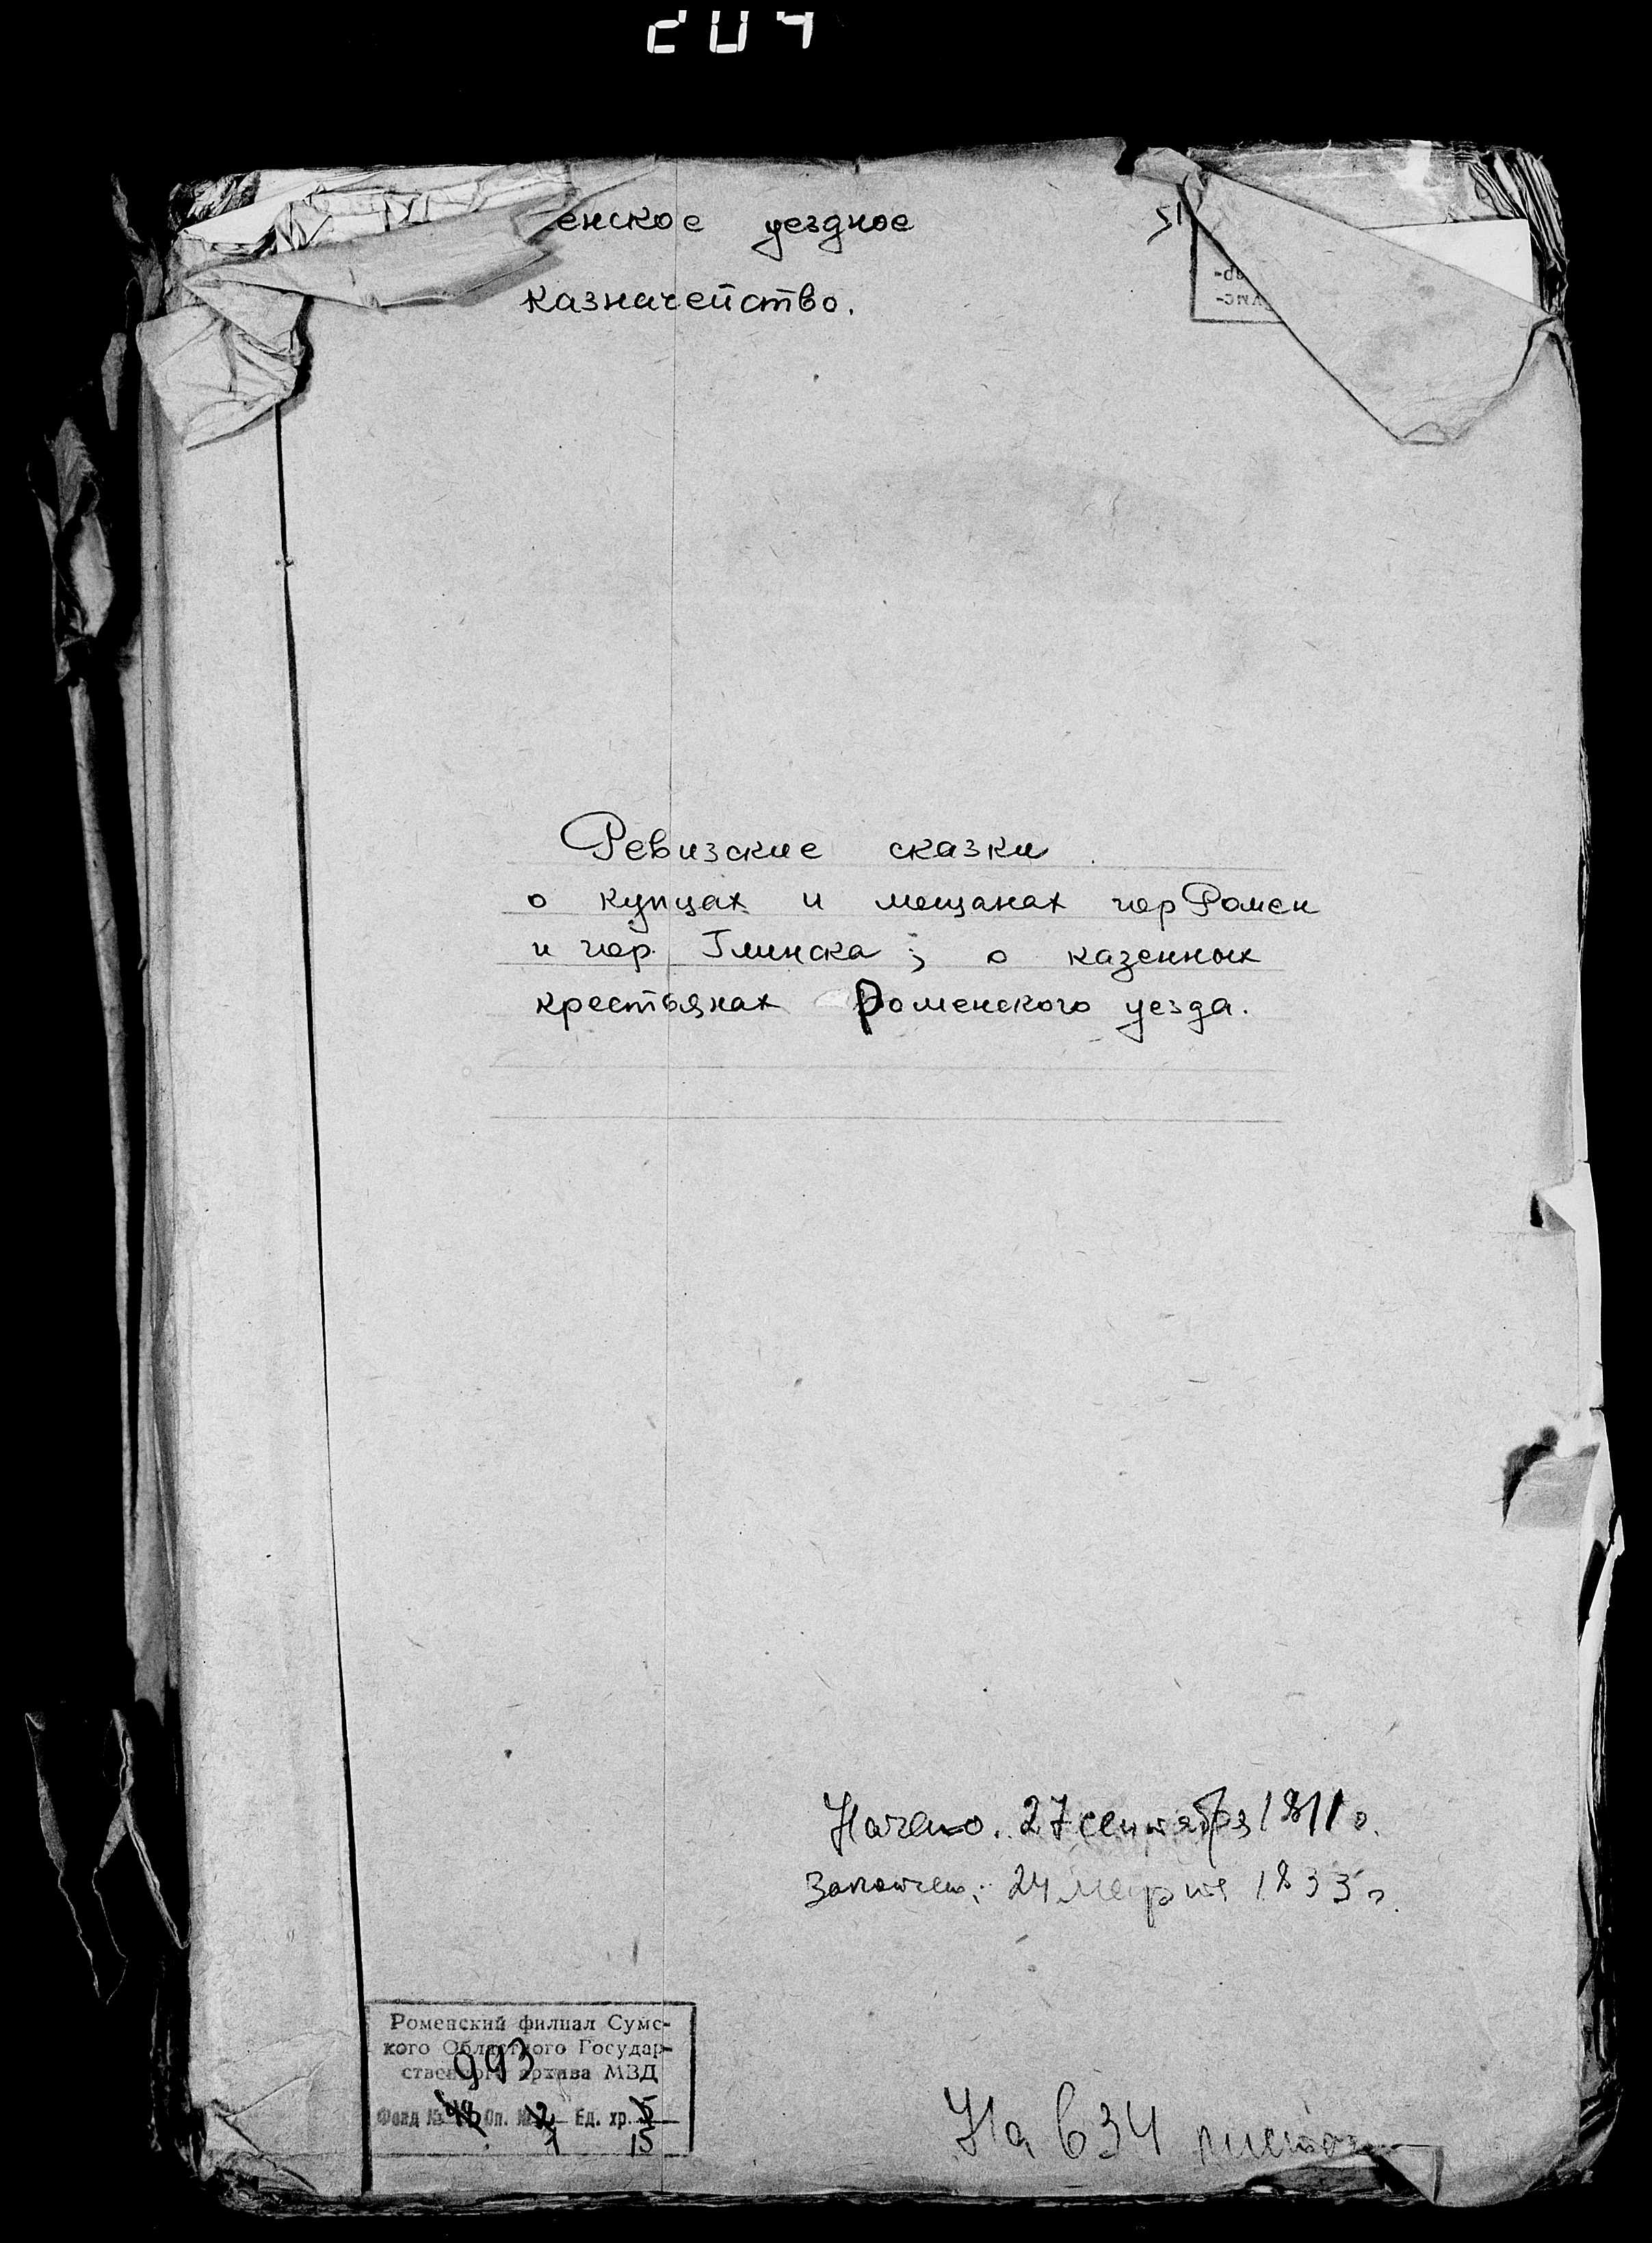 204
енское уездное
казначейство.
Ревизские сказки
о купцах и мещанах гор Ромен
и гор. Глинска; о казенных
крестьянах Роменского уезда.
Начато. 27 сентября 1811 г.
Закончен: 24 марта 1833 г.
Роменский филиал Сумс-
кого Областного Государ-
ственного архива МВД
993
Фонд № 48 Оп. № 2 Ед. хр. 5
1 15
На 634 листах